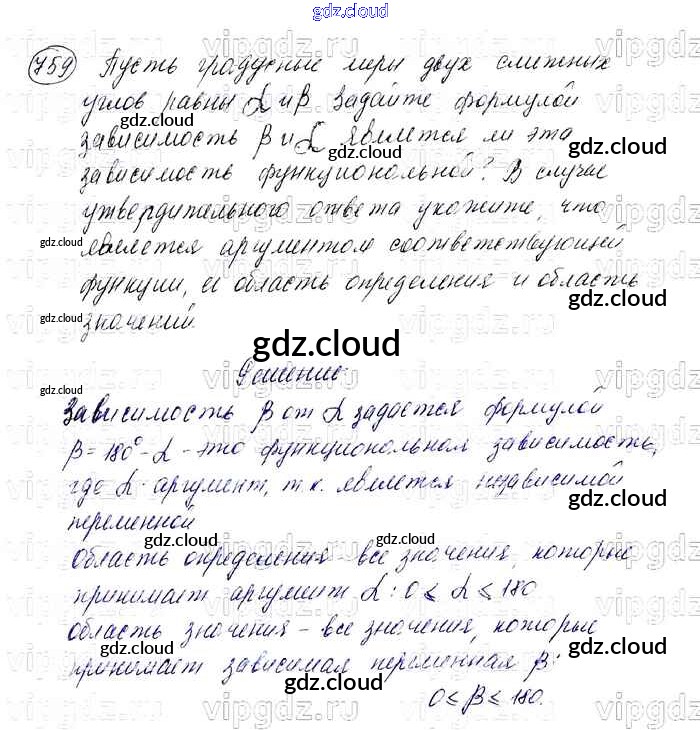 gdz.cloud
759 Пусть градусные меры двух смежных
углов равны α и β Задайте формулой
зависимость β и α является ли эта
зависимость функциональной? В случае
утвердительного ответа укажите, что
является аргументом соответствующей
функции, её область определения и область
значений.
Решение:
Зависимость β от α задаётся формулой
β = 180° - α - это функциональная зависимость,
где α - аргумент, т.к. является независимой
переменной
Область определения - все значения, которые
принимает аргумент α: 0 ≤ α ≤ 180
Область значения - все значения, которые
принимает зависимая переменная β:
0 ≤ β ≤ 180.
gdz.cloud
vipgdz.ru